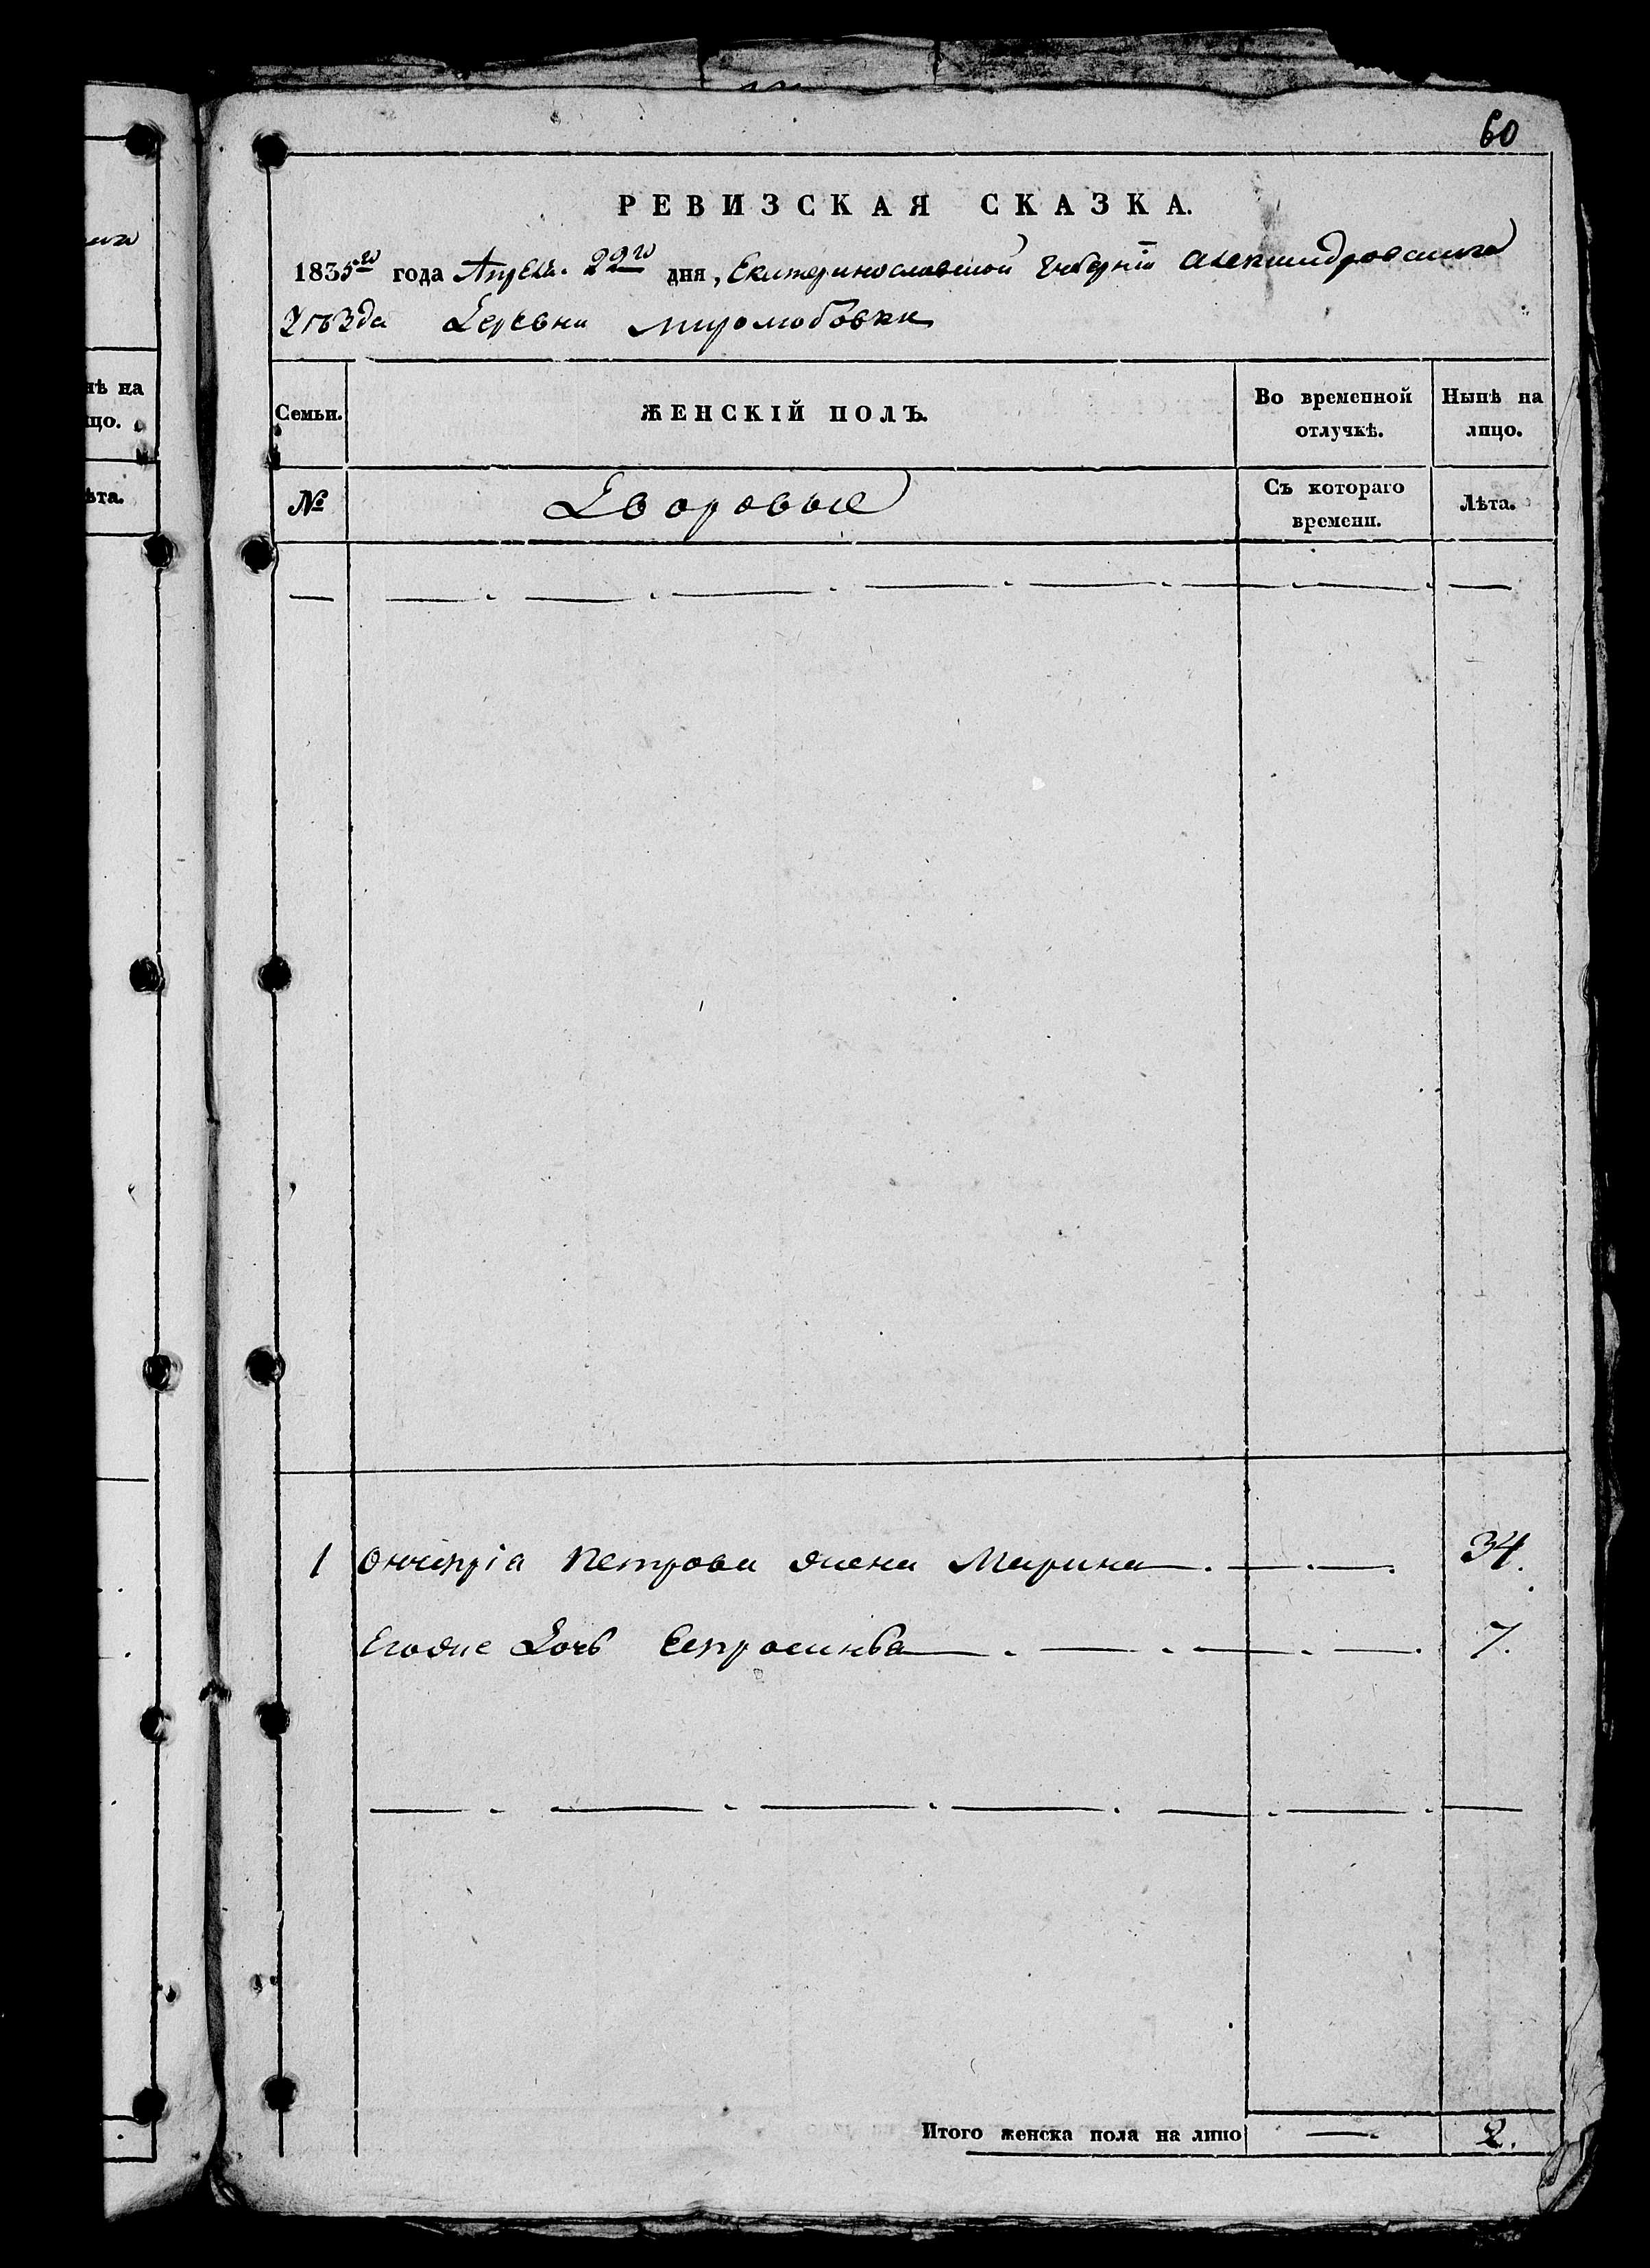 60
РЕВИЗСКАЯ СКАЗКА.
1835го года Апреля 22го дня, Екатеринославской Губернiи Александровскаго
Уѣзда Деревни Миролюбовки
Семьи. ЖЕНСКІЙ ПОЛЪ. Во временной отлучкѣ. Нынѣ на лицо.
№ Дворовые Съ котораго времени. Лѣта.
1 Петрова жена Марина 34.
Егоже дочь 7.
Итого женска пола на лицо — 2.
нѣ на
цо.
ѣта.